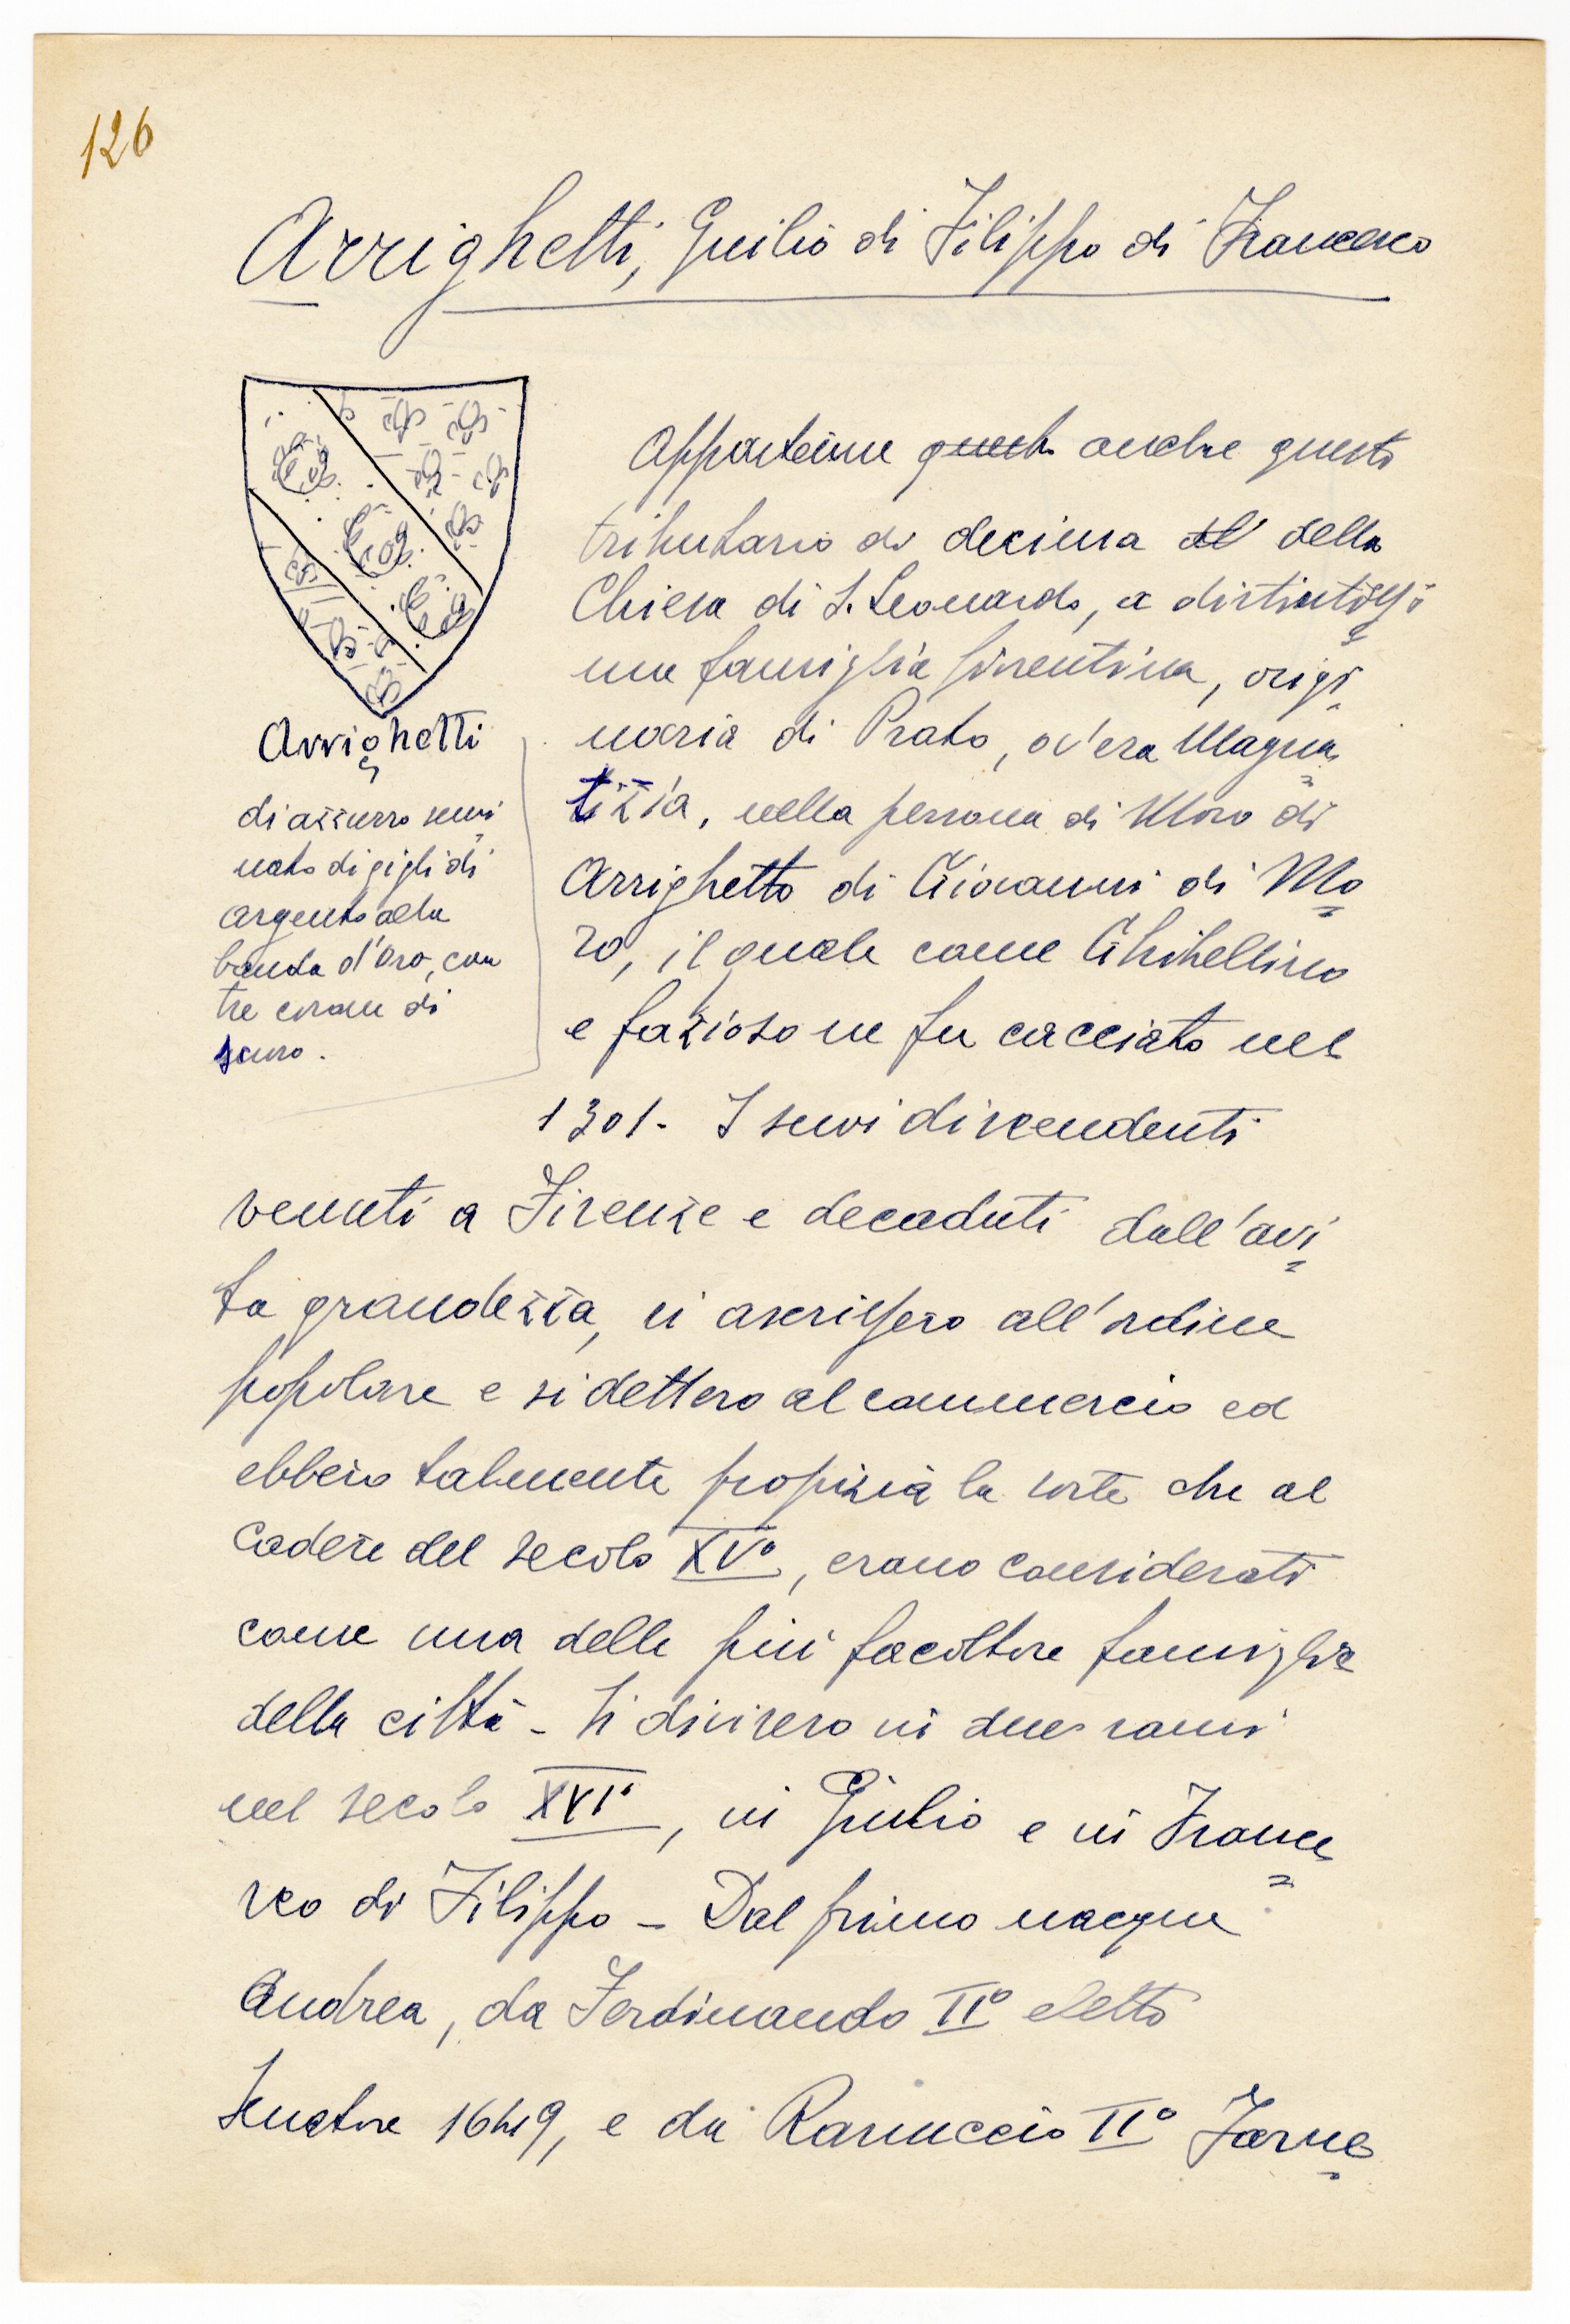 126
Arrighetti, Giulio di Filippo di Francesco
Appartenne questo anche questo
tributario di decima al della
Chiesa di S. Leonardo, a distintissi
ma famiglia fiorentina, origi
naria di Prato, ov'era Magna
tizia, nella persona di Moro di
Arrighetto di Giovanni di Mo
ro, il quale come Ghibellino
e fazioso ne fu cacciato nel
1301. I suoi discendenti
Arrighetti
di azzurro semi
nato di gigli di
argento alla
banda d'oro, con
tre corone di
venuti a Firenze e decaduti dall'avi
ta grandezza, si ascrissero all'ordine
popolare e si dettero al commercio ed
ebbero talmente propizia la sorte che al
cadere del secolo XV°, erano considerati
come una delle più facoltose famiglie
della città - Si divisero in due rami
nel secolo XVI°, in Giulio e in France
sco di Filippo - Dal primo nacque
Andrea, da Ferdinando II° eletto
Senatore 1649, e da Ranuccio II° Farne